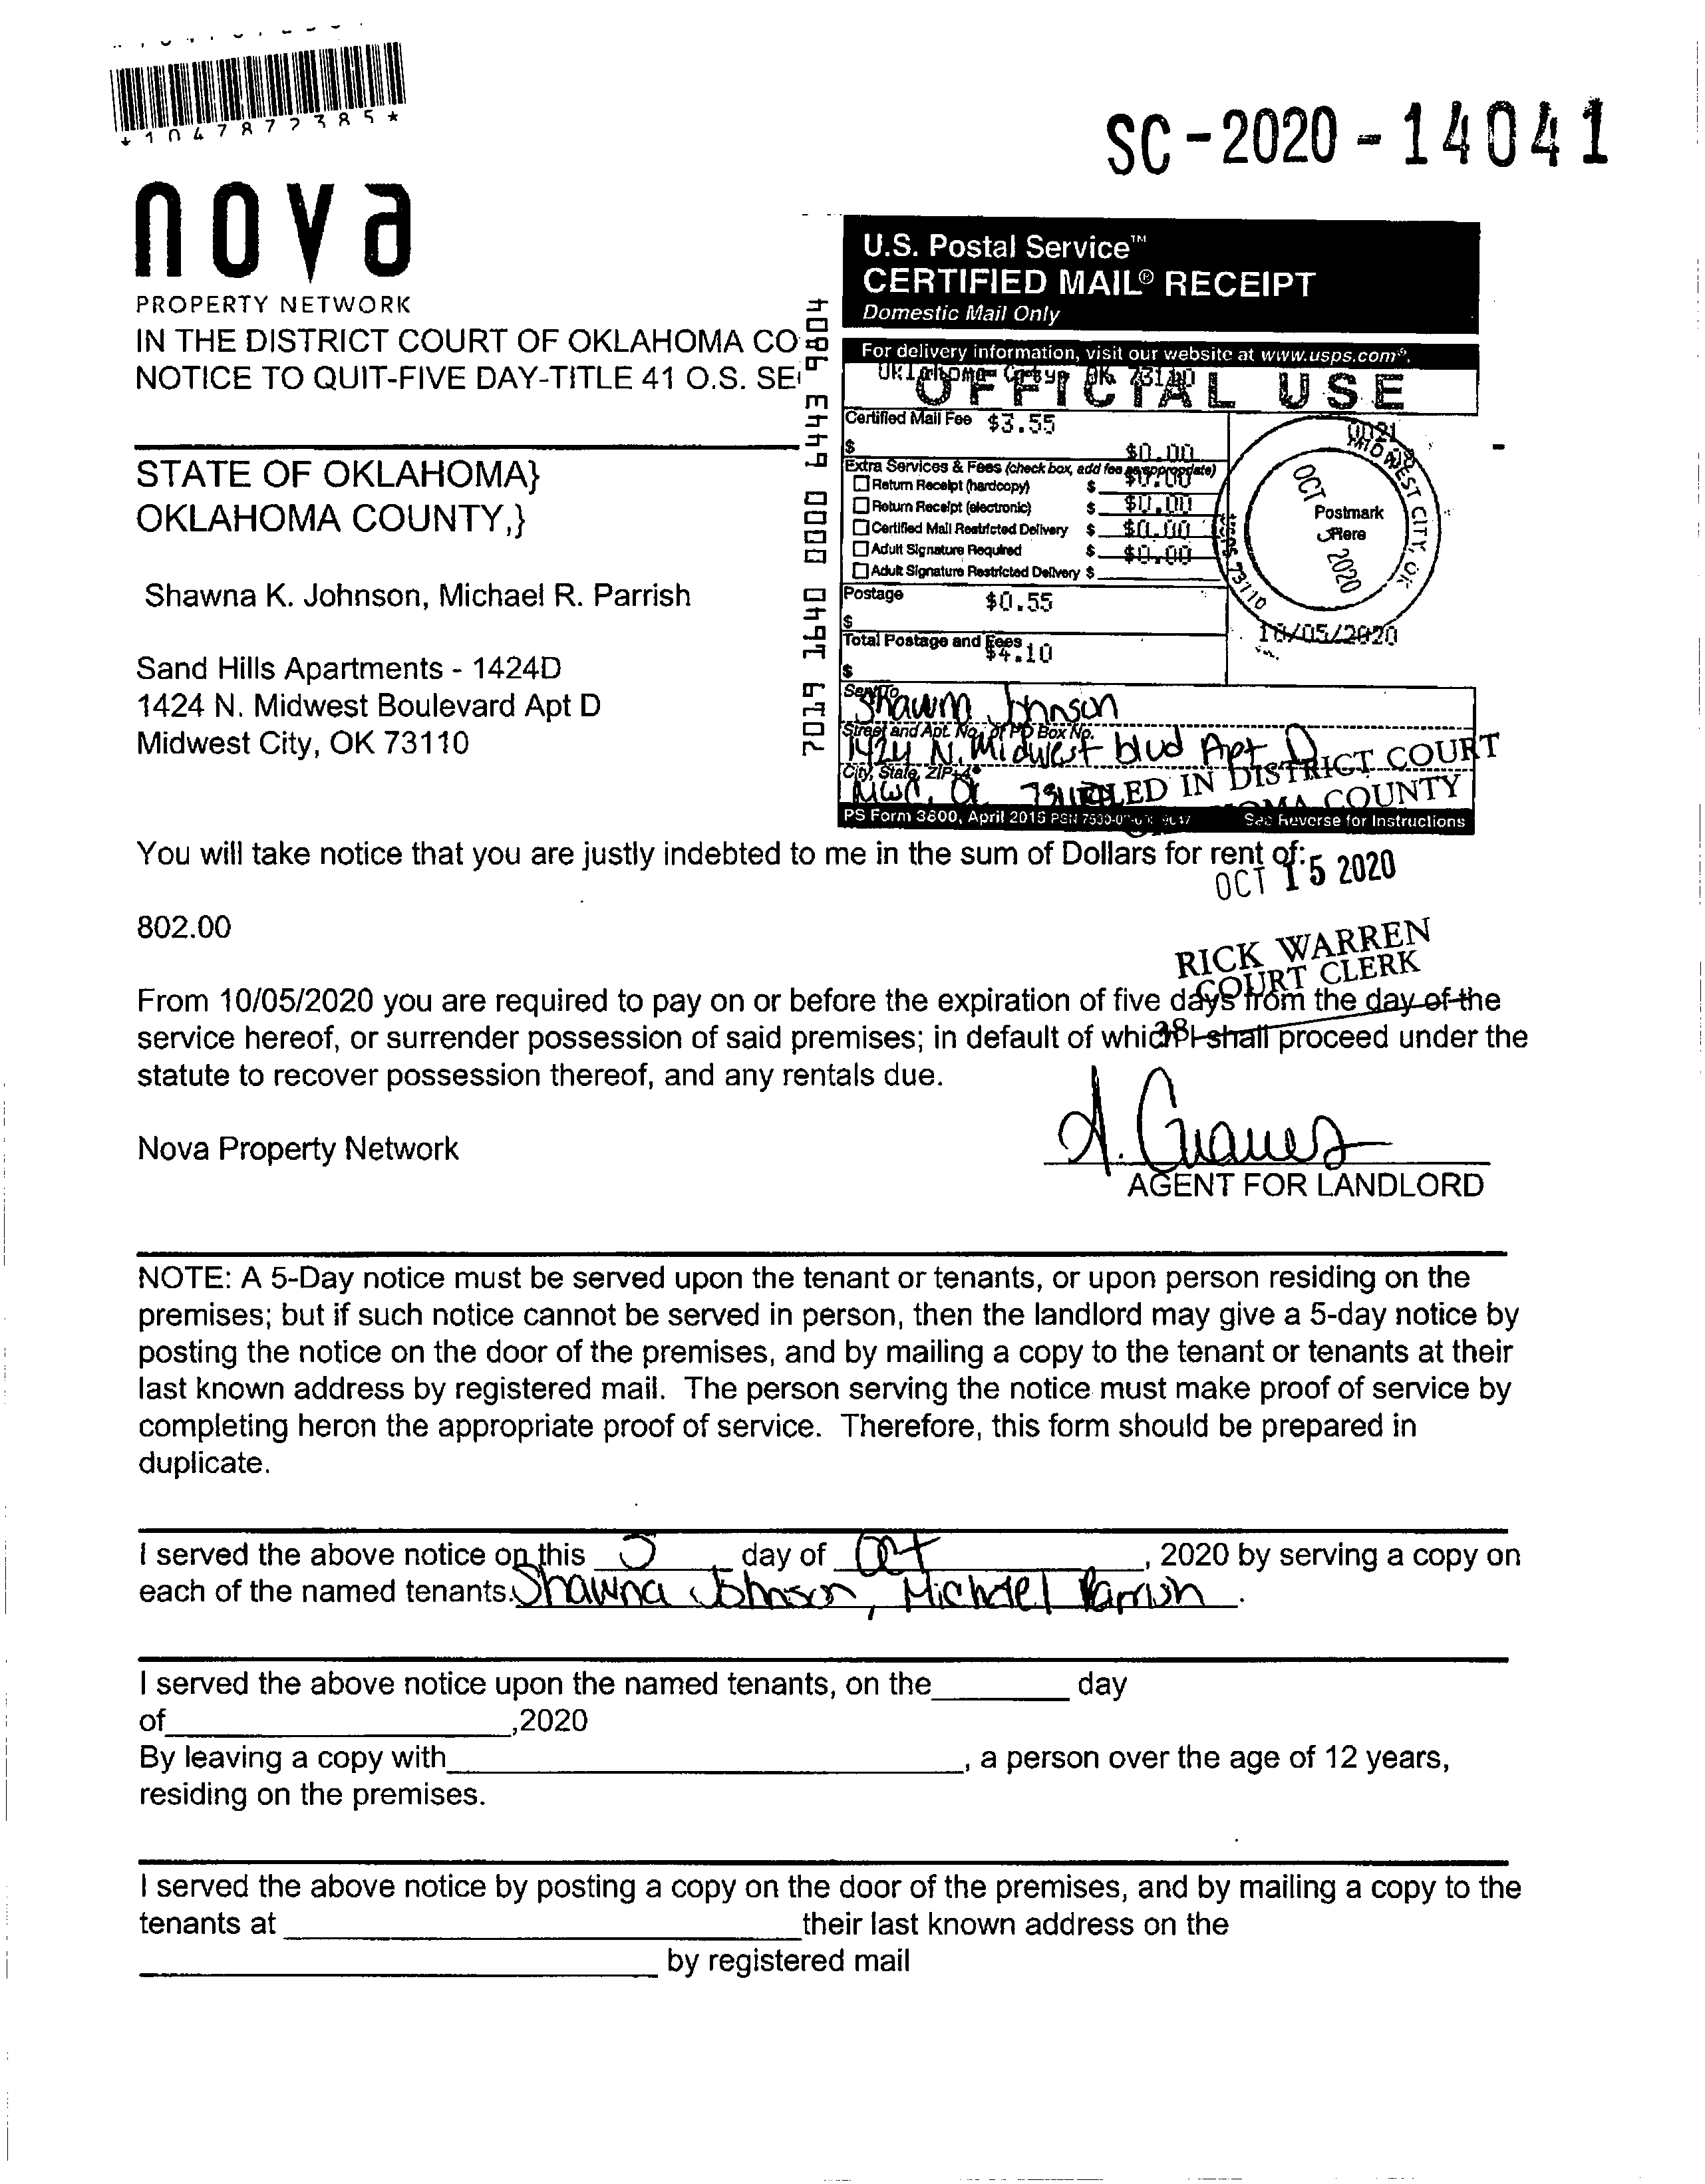 *1047872385*
SC-2020-14041
nova
PROPERTY NETWORK
IN THE DISTRICT COURT OF OKLAHOMA CO
NOTICE TO QUIT-FIVE DAY-TITLE 41 O.S. SE
STATE OF OKLAHOMA}
OKLAHOMA COUNTY,}
Shawna K. Johnson, Michael R. Parrish
Sand Hills Apartments - 1424D
1424 N. Midwest Boulevard Apt D
Midwest City, OK 73110
U.S. Postal Service™
CERTIFIED MAIL® RECEIPT
Domestic Mail Only
For delivery information, visit our website at www.usps.com®.
OFFICIAL USE
Certified Mail Fee $3.55
$ $0.00
Extra Services & Fees (check box, add fee as appropriate)
Return Receipt (hardcopy) $ $0.00
Return Receipt (electronic) $ $0.00
Certified Mail Restricted Delivery $ $0.00
Adult Signature Required $ $0.00
Adult Signature Restricted Delivery $
Postage $0.55
$
Total Postage and Fees $4.10
$
MIDWEST CITY, OK
OCT 5 2020
Postmark
Here
USPS 73110
10/05/2020
Sent To
Shawna Johnson
Street and Apt. No., or PO Box No.
1424 N. Midwest blvd Apt D
City, State, ZIP+4®
MWC, OK
PS Form 3800, April 2015 See Reverse for Instructions
FILED IN DISTRICT COURT
COUNTY
You will take notice that you are justly indebted to me in the sum of Dollars for rent of:
OCT 15 2020
802.00
RICK WARREN
COURT CLERK
From 10/05/2020 you are required to pay on or before the expiration of five days from the day of the
service hereof, or surrender possession of said premises; in default of which I shall proceed under the
statute to recover possession thereof, and any rentals due.
Nova Property Network
A. Graves
AGENT FOR LANDLORD
NOTE: A 5-Day notice must be served upon the tenant or tenants, or upon person residing on the
premises; but if such notice cannot be served in person, then the landlord may give a 5-day notice by
posting the notice on the door of the premises, and by mailing a copy to the tenant or tenants at their
last known address by registered mail. The person serving the notice must make proof of service by
completing heron the appropriate proof of service. Therefore, this form should be prepared in
duplicate.
I served the above notice on this 5 day of Oct, 2020 by serving a copy on
each of the named tenants. Shawna Johnson, Michael Parrish.
I served the above notice upon the named tenants, on the day
of ,2020
By leaving a copy with , a person over the age of 12 years,
residing on the premises.
I served the above notice by posting a copy on the door of the premises, and by mailing a copy to the
tenants at their last known address on the
by registered mail